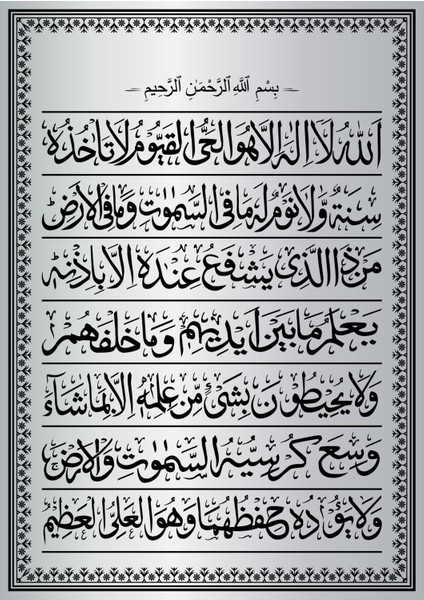 بِسْمِ اللَّهِ الرَّحْمَٰنِ الرَّحِيمِ
اَللّٰهُ لَاۤ اِلٰهَ اِلَّا هُوَ الْحَیُّ الْقَیُّوْمُ لَا تَاْخُذُهٗ
سِنَةٌ وَّلَا نَوْمٌ لَهٗ مَا فِی السَّمٰوٰتِ وَمَا فِی الْاَرْضِ
مَنْ ذَا الَّذِیْ یَشْفَعُ عِنْدَهٗ اِلَّا بِاِذْنِهٖ
یَعْلَمُ مَا بَیْنَ اَیْدِیْهِمْ وَمَا خَلْفَهُمْ
وَلَا یُحِیْطُوْنَ بِشَیْءٍ مِّنْ عِلْمِهٖۤ اِلَّا بِمَا شَآءَ
وَسِعَ كُرْسِیُّهُ السَّمٰوٰتِ وَالْاَرْضَ
وَلَا یَـُٔوْدُهٗ حِفْظُهُمَا وَهُوَ الْعَلِیُّ الْعَظِیْمُ